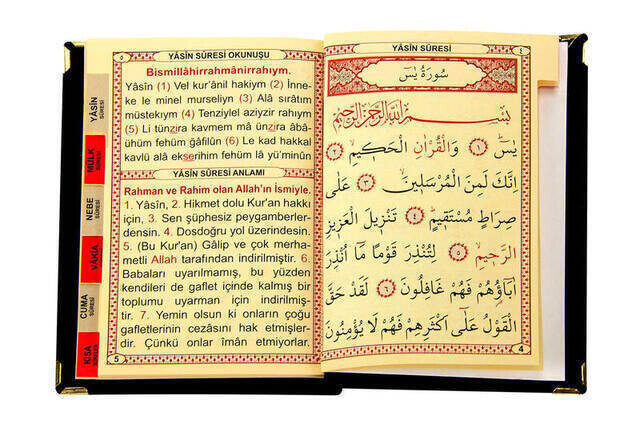 YÂSİN
SÛRESİ
MÜLK
SÛRESİ
NEBE
SÛRESİ
VÂKIA
SÛRESİ
CUMA
SÛRESİ
KISA
SÛRELER
٥ YÂSİN SÛRESİ OKUNUŞU
Bismillâhirrahmânirrahıym.
Yâsîn (1) Vel kur'ânil hakiym (2) İnne-
ke le minel murseliyn (3) Alâ sırâtım
müstekıym (4) Tenziylel aziyzir rahıym
(5) Li tünzira kavmem mâ ünzira âbâ-
ühüm fehüm ğâfilûn (6) Le kad hakkal
kavlü alâ ekserihim fehüm lâ yü'minûn
YÂSİN SÛRESİ ANLAMI
Rahman ve Rahim olan Allah'ın İsmiyle.
1. Yâsîn, 2. Hikmet dolu Kur'an hakkı
için, 3. Sen şüphesiz peygamberler-
densin. 4. Dosdoğru yol üzerindesin.
5. (Bu Kur'an) Gâlip ve çok merha-
metli Allah tarafından indirilmiştir. 6.
Babaları uyarılmamış, bu yüzden
kendileri de gaflet içinde kalmış bir
toplumu uyarman için indirilmiş-
tir. 7. Yemin olsun ki onların çoğu
gafletlerinin cezâsını hak etmişler-
dir. Çünkü onlar îman etmiyorlar.
5
YÂSİN SÛRESİ ٤
سُورَةُ يٰسٓ
بِسْمِ اللّٰهِ الرَّحْمٰنِ الرَّحِيمِ
يٰسٓ ﴿١﴾ وَالْقُرْاٰنِ الْحَكِيمِ ﴿٢﴾
اِنَّكَ لَمِنَ الْمُرْسَلِينَ ﴿٣﴾ عَلٰى
صِرَاطٍ مُسْتَقِيمٍ ﴿٤﴾ تَنْزِيلَ الْعَزِيزِ
الرَّحِيمِ ﴿٥﴾ لِتُنْذِرَ قَوْمًا مَٓا اُنْذِرَ
اٰبَٓاؤُ۬هُمْ فَهُمْ غَافِلُونَ ﴿٦﴾ لَقَدْ حَقَّ
الْقَوْلُ عَلٰٓى اَكْثَرِهِمْ فَهُمْ لَا يُؤْمِنُونَ
4